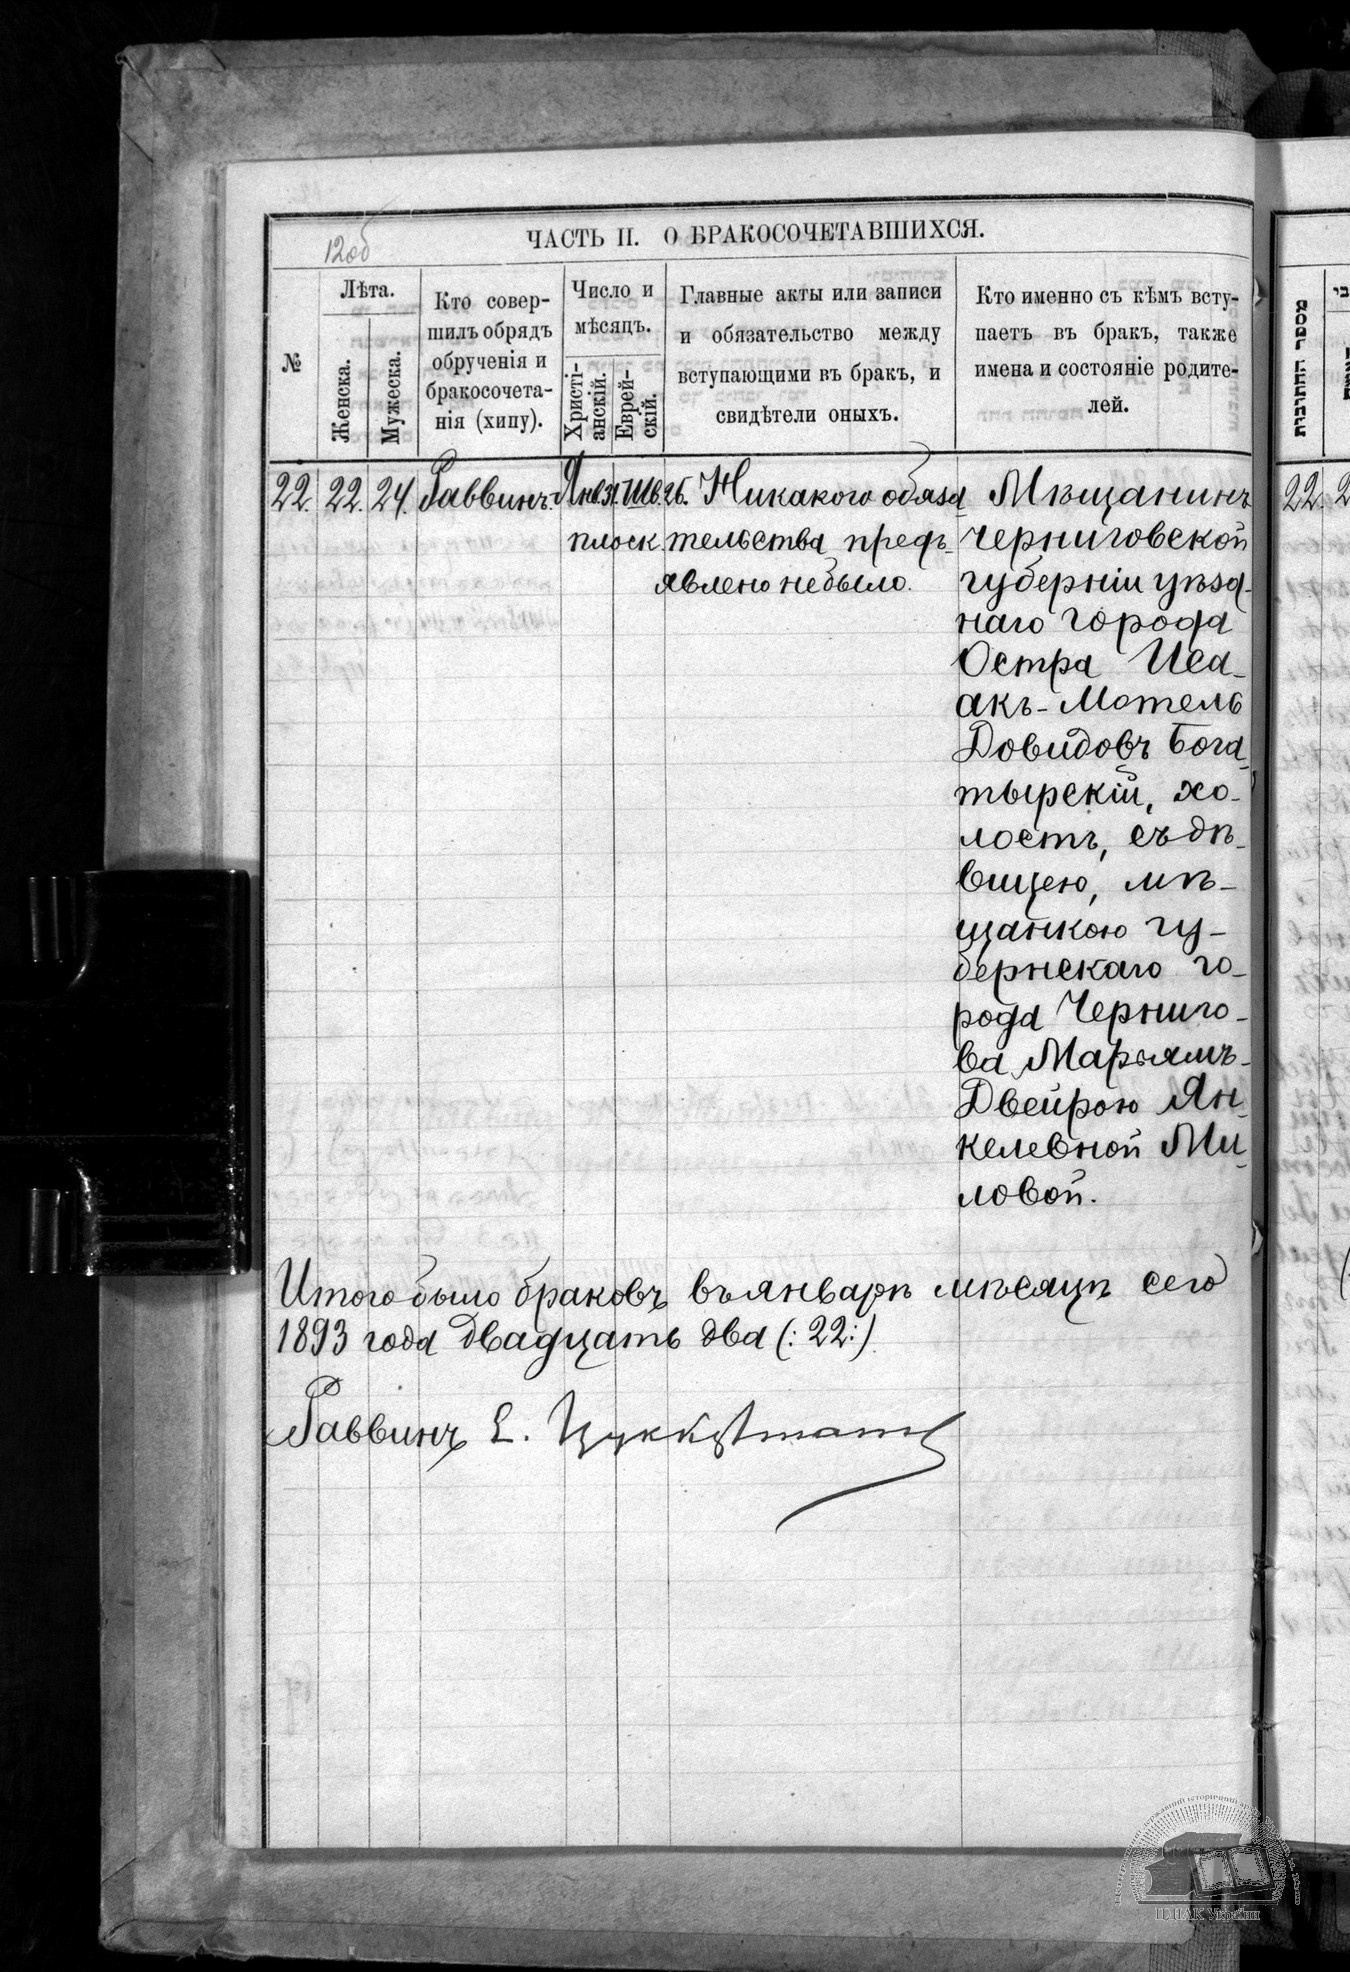 12об
ЧАСТЬ II. О БРАКОСОЧЕТАВШИХСЯ.
№
Лѣта.
Женска.
Мужеска.
Кто совер-
шилъ обрядъ
обрученія и
бракосочета-
нія (хипу).
Число и
мѣсяцъ.
Христі-
анскій.
Еврей-
скій.
Главные акты или записи
и обязательство между
вступающими въ бракъ, и
свидѣтели оныхъ.
Кто именно съ кѣмъ всту-
паетъ въ бракъ, также
имена и состояніе родите-
лей.
22. 22. 24. Раввинъ. Янв. 31. Шв. 26. Никакого обяза-
плоск. тельства предъ-
явлено не было.
Мѣщанинъ
Черниговской
губерніи уѣзд-
наго города
Остра Иса-
акъ-Мотель
Довидовъ Бога-
тырскій, хо-
лостъ, съ дѣ-
вицею, мѣ-
щанкою гу-
бернскаго го-
рода Черниго-
ва Марьямъ-
Двейрою Ян-
келевной Ми-
ловой.
Итого было браковъ въ январѣ мѣсяцѣ сего
1893 года двадцать два (: 22 :)
Раввинъ Е. Цуккерманъ
מספר החתונות
22.
ЦДІАК України